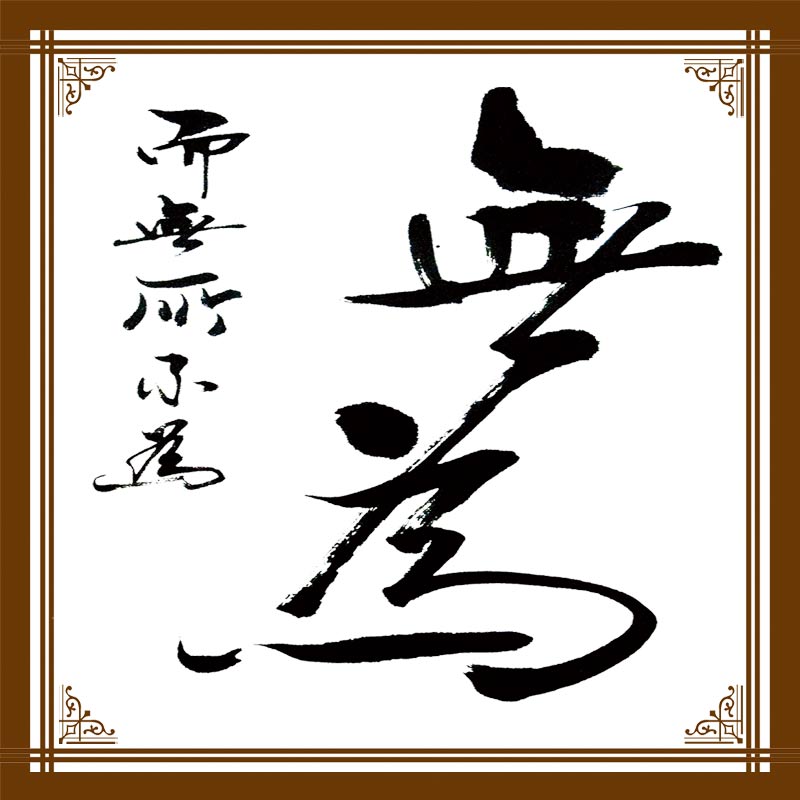 無為
而無所不為